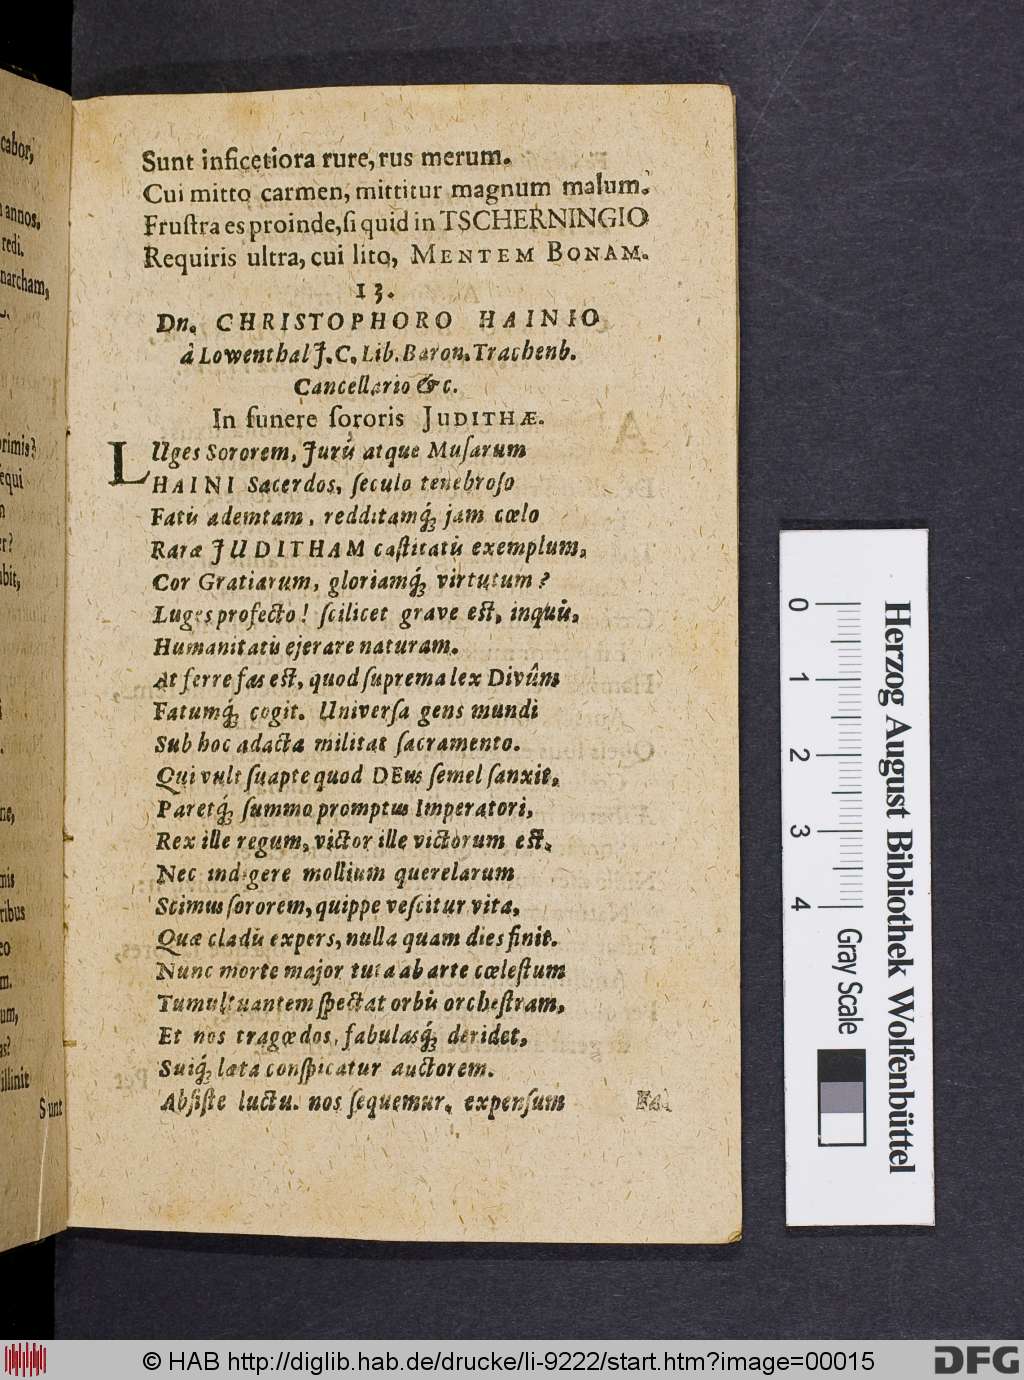 Sunt inficetiora rure, rus merum.
Cui mitto carmen, mittitur magnum malum.
Frustra es proinde, si quid in TSCHERNINGIO
Requiris ultra, cui lito, MENTEM BONAM.
13.
Dn. CHRISTOPHORO HAINIO
à Lowenthal J. C. Lib. Baron. Trachenb.
Cancellario &c.
In funere sororis JUDITHÆ.
LUges Sororem, Jurũ atque Musarum
HAINI Sacerdos, seculo tenebroso
Fatũ ademtam, redditamq́; jam cœlo
Raræ JUDITHAM castitatũ exemplum,
Cor Gratiarum, gloriamq́; virtutum?
Luges profectò! scilicet grave est, inquũ,
Humanitatũ ejerare naturam.
At ferre fas est, quod suprema lex Divûm
Fatumq́; cogit. Universa gens mundi
Sub hoc adacta militat sacramento.
Qui vult suapte quod DEus semel sanxit,
Paretq́; summo promptus Imperatori,
Rex ille regum, victor ille victorum est,
Nec indigere mollium querelarum
Scimus sororem, quippe vescitur vita,
Quæ cladũ expers, nulla quam dies finit.
Nunc morte major tuta ab arte cœlestum
Tumultuantem spectat orbũ orchestram,
Et nos tragœdos, fabulasq́; deridet,
Suiq́; læta conspicatur auctorem.
Absiste luctu. nos sequemur. expensum
cabor,
annos.
redi.
narcham,
rimis?
sequi
ribus
um,
illinit
Sunt
0 1 2 3 4
Gray Scale
Herzog August Bibliothek Wolfenbüttel
© HAB http://diglib.hab.de/drucke/li-9222/start.htm?image=00015
DFG